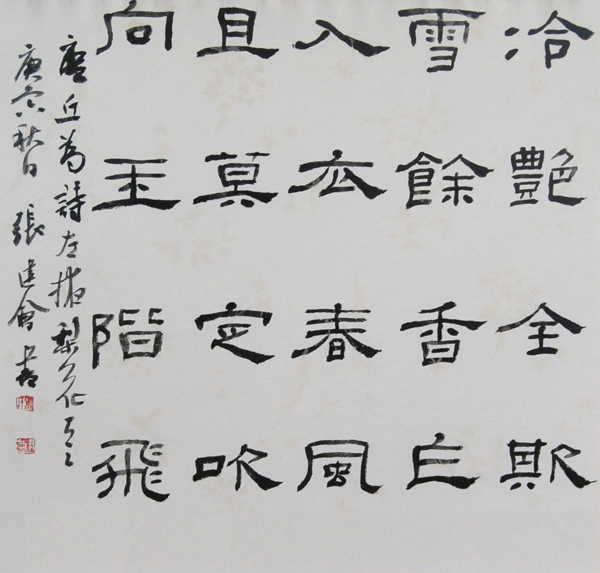 冷艷全欺
雪餘香乍
入衣春風
且莫定吹
向玉階飛
唐丘為詩左掖梨花
庚寅秋日 張建會書